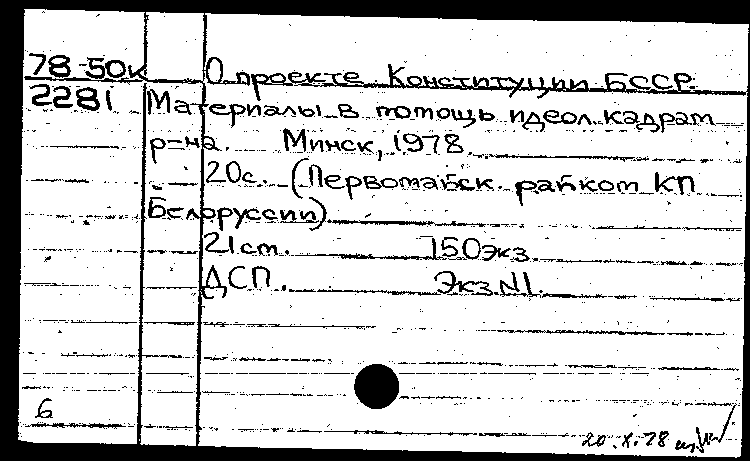 78-50к О проекте Конституции БССР.
2281 Материалы в помощь идеол. кадрам
р-на. Минск, 1978.
20с. (Первомайск. райком КП
Белоруссии)
21 см. 150 экз.
ДСП. Экз. №1.
6
20.X.78